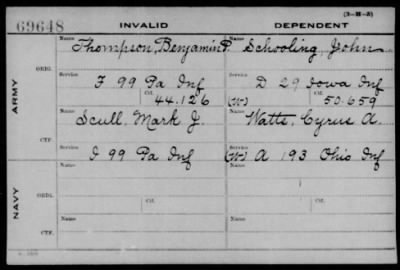 (3-M-3)
69648 INVALID DEPENDENT
Name Name
Thompson, Benjamin P. Schooling, John
ORIG. Service Service
F 99 Pa Inf D 29 Iowa Inf
ARMY Ctf. 44.126 (W) Ctf. 50.659
Name Name
Scull, Mark J. Watts, Cyrus A.
CTF. Service Service
I 99 Pa Inf (W) A 193 Ohio Inf
Name Name
ORIG. Ctf. Ctf.
NAVY Service Service
Name Name
CTF. Service Service